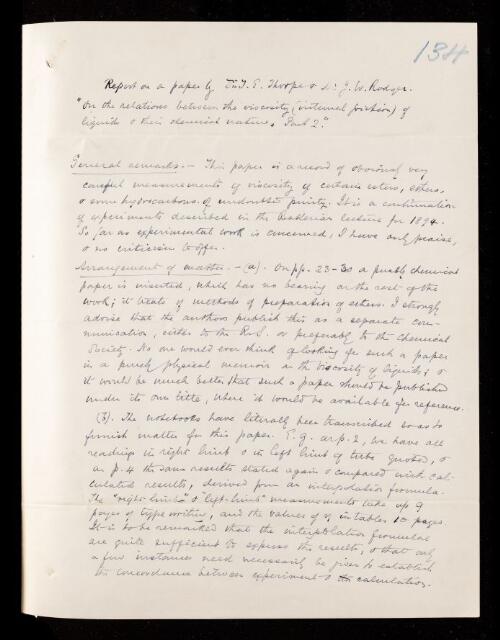 134
Report on a paper by Dr. T. E. Thorpe & Dr. J. W. Rodger.
"On the relations between the viscosity (internal friction) of
liquids & their chemical nature, Part 2."
General remarks. — This paper is a record of obviously very
careful measurements of viscosity of certain esters, ethers,
& some hydrocarbons, of undoubted purity. It is a continuation
of experiments described in the Bakerian lecture for 1894.
So far as experimental work is concerned, I have only praise,
& no criticism to offer.
Arrangement of matter. — (a). On pp. 23-30 a purely chemical
paper is inserted, which has no bearing on the rest of the
work; it treats of methods of preparation of ethers. I strongly
advise that the authors publish this as a separate com-
munication, either to the R.S. or preferably to the Chemical
Society. No one would ever think of looking for such a paper
in a purely physical memoir on the viscosity of liquids; &
it would be much better that such a paper should be published
under its own title, where it would be available for reference.
(b). The notebooks have literally been transcribed so as to
furnish matter for this paper. E.g. on p. 2, we have all
readings in right limb & in left limb of tube quoted, &
on p. 4 the same results stated again & compared with cal-
culated results, derived from an interpolation formula.
The "right-limb" & "left-limb" measurements take up 9
pages of type writing, and the values of η in tables 10 pages.
It is to be remarked that the interpolation formulae
are quite sufficient to express the results, & that only
a few instances need necessarily be given to establish
the concordance between experiment & calculation.